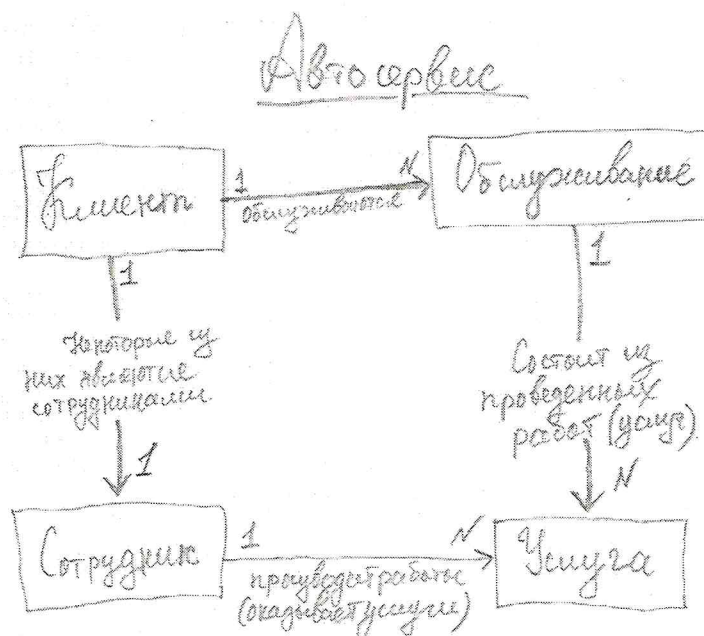 Автосервис
Клиент
1
N
Обслуживаются
Обслуживание
1
Некоторые из
них являются
сотрудниками
1
1
Состоит из
проведенных
работ (услуг)
N
Сотрудник
1
N
производит работы
(оказывает услуги)
Услуга